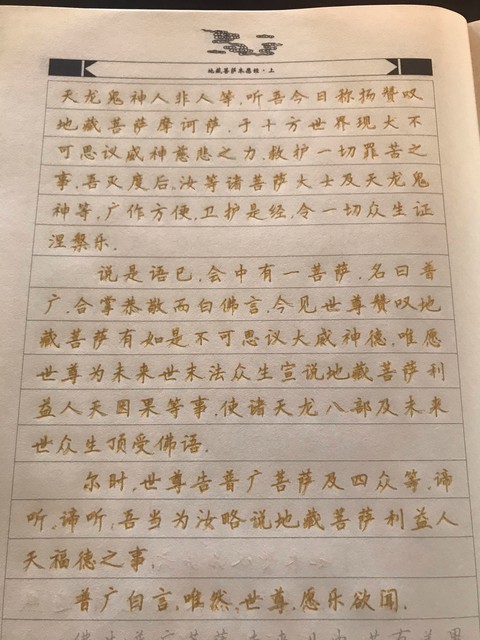 地藏菩萨本愿经·上
天龙鬼神人非人等,听吾今日称扬赞叹
地藏菩萨摩诃萨,于十方世界现大不
可思议威神慈悲之力,救护一切罪苦之
事,吾灭度后,汝等诸菩萨大士及天龙鬼
神等,广作方便,卫护是经,令一切众生证
涅槃乐.
说是语已,会中有一菩萨,名曰普
广,合掌恭敬而白佛言,今见世尊赞叹地
藏菩萨有如是不可思议大威神德,唯愿
世尊为未来世末法众生宣说地藏菩萨利
益人天因果等事,使诸天龙八部及未来
世众生顶受佛语.
尔时,世尊告普广菩萨及四众等,谛
听,谛听,吾当为汝略说地藏菩萨利益人
天福德之事.
普广白言,唯然,世尊,愿乐欲闻.